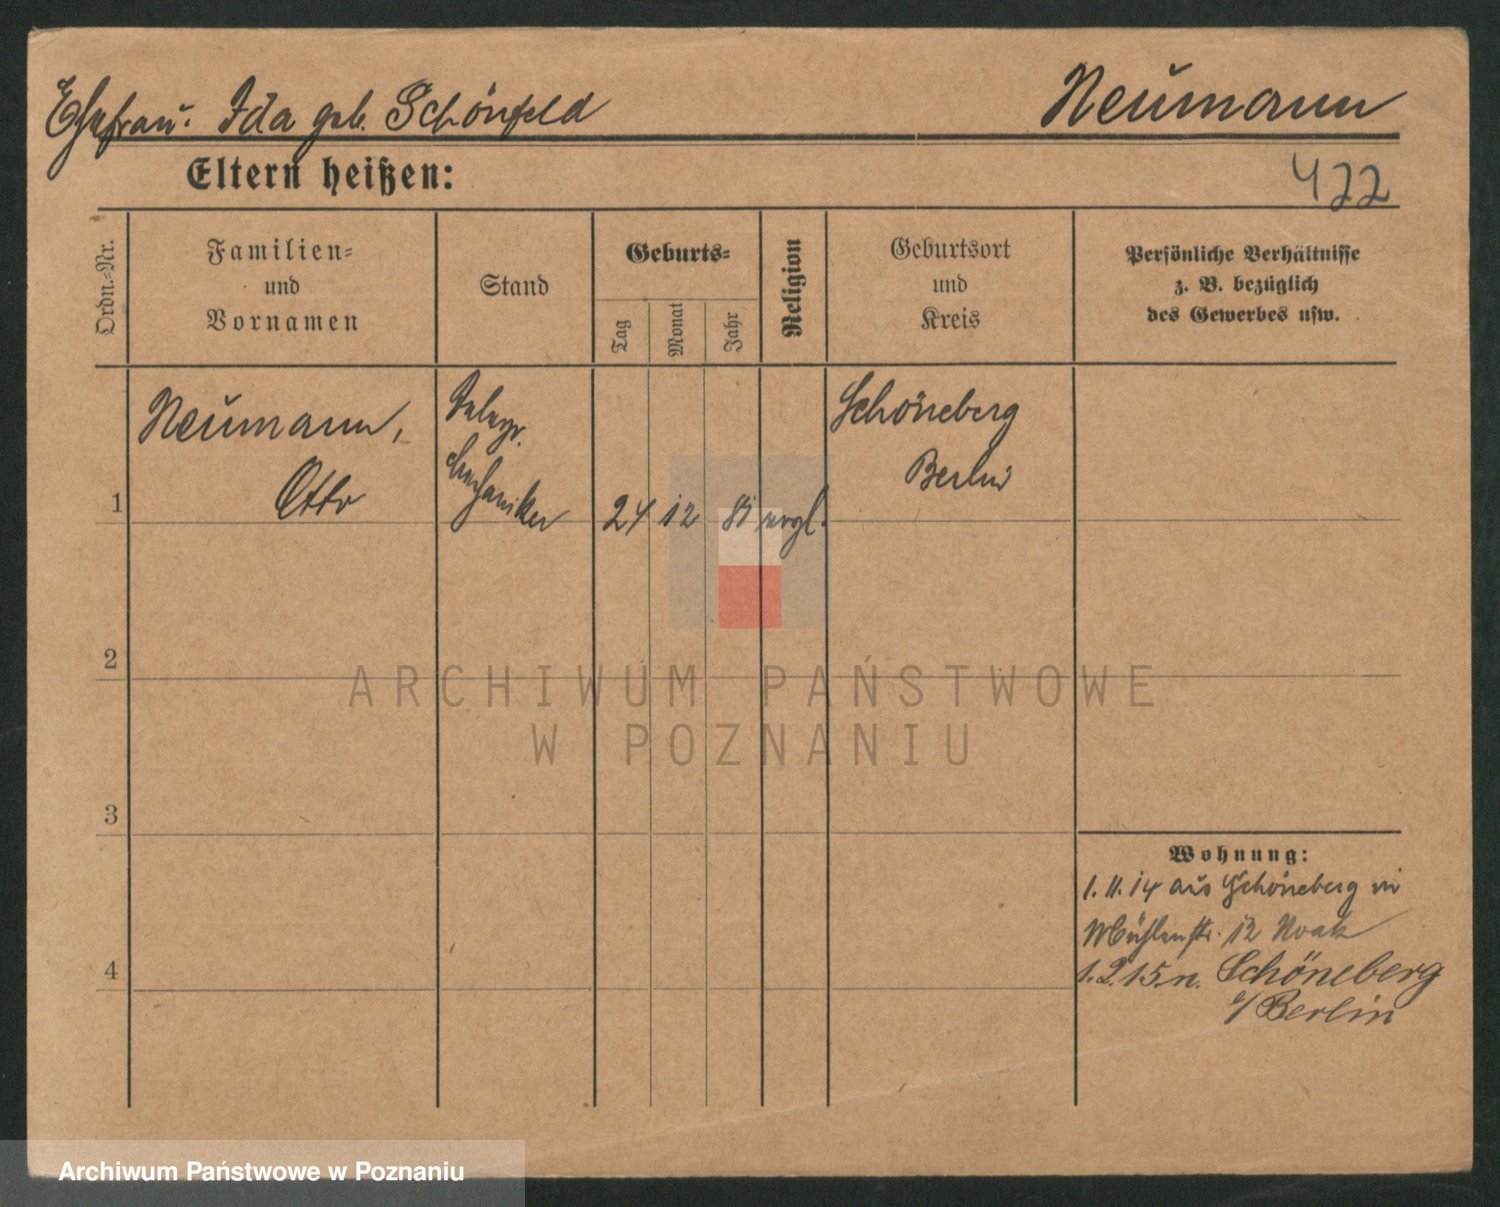 Ehefrau. Ida geb. Schönfeld
Neumann
Eltern heißen:
422
Ordn.-Nr.
Familien-
und
Vornamen
Stand
Geburts-
Tag
Monat
Jahr
Religion
Geburtsort
und
Kreis
Persönliche Verhältnisse
z. B. bezüglich
des Gewerbes usw.
1
Neumann,
Otto
Telegr.
Mechaniker
24
12
evgl.
Schöneberg
Berlin
2
3
4
Wohnung:
1. 11. 14 aus Schöneberg in
Mühlenstr. 12 Noak
1. 2. 15. n. Schöneberg
b/ Berlin
ARCHIWUM PAŃSTWOWE
W POZNANIU
Archiwum Państwowe w Poznaniu